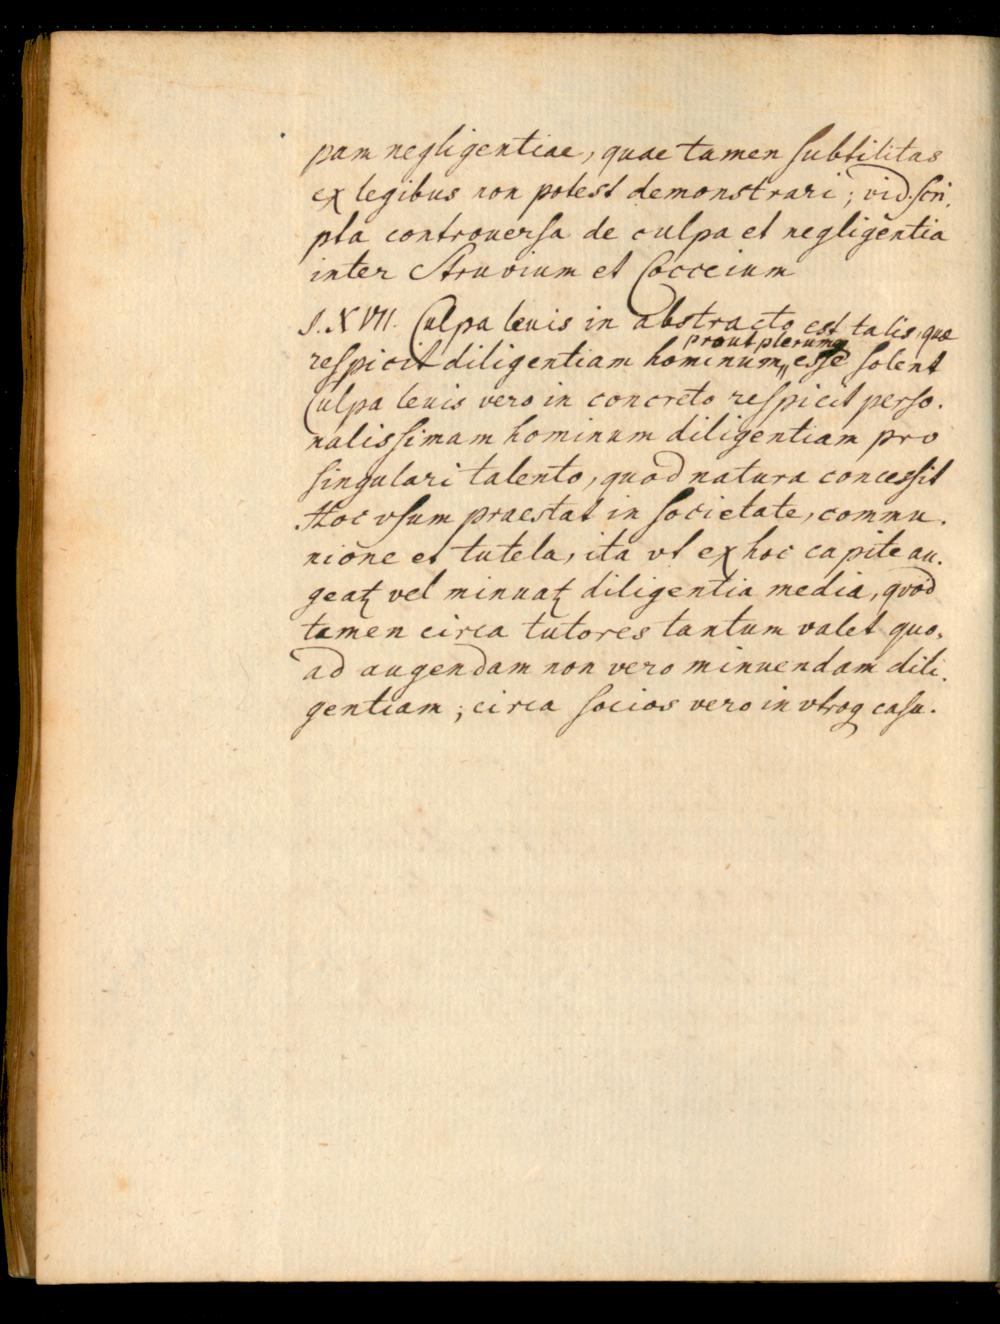 pam negligentiae, quae tamen subtilitas
ex legibus non potest demonstrari; vid. scri.
pta controuersa de culpa et negligentia
inter Struvium et Cocceium
§. XVII. Culpa leuis in abstracto est talis, quæ
prout plerumq
respicit diligentiam hominum,, esse solent
Culpa leuis vero in concreto respicit perso.
nalissimam hominum diligentiam pro
singulari talento, quod natura concessit
Hoc vsum praestat in societate, commu.
nione et tutela, ita vt ex hoc capite au.
geatꝭ vel minuatꝭ diligentia media, qvod
tamen circa tutores tantum valet quo.
ad augendam non vero minuendam dili.
gentiam; circa socios vero in vtroq casu.